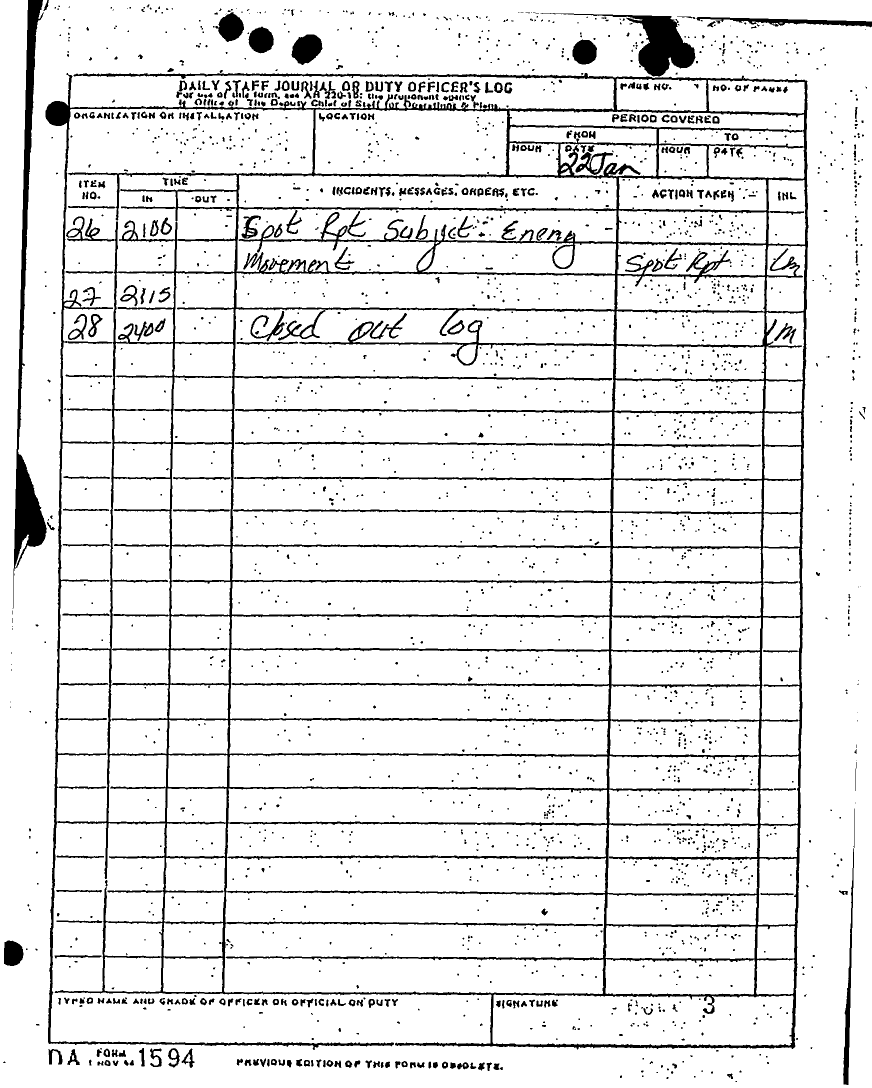 DAILY STAFF JOURNAL OR DUTY OFFICER'S LOG
For use of this form, see AR 220-15; the proponent agency
is Office of The Deputy Chief of Staff for Operations & Plans.
PAGE NO.
NO. OF PAGES
ORGANIZATION OR INSTALLATION
LOCATION
PERIOD COVERED
FROM
TO
HOUR
DATE
HOUR
DATE
22 Jan
ITEM NO.
TIME
IN
OUT
INCIDENTS, MESSAGES, ORDERS, ETC.
ACTION TAKEN
INL
26 2100 Spot Rpt Subject: Enemy
Movement Spot Rpt LM
27 2115
28 2400 Closed out log LM
TYPED NAME AND GRADE OF OFFICER OR OFFICIAL ON DUTY
SIGNATURE
3
DA FORM 1 NOV 1594
PREVIOUS EDITION OF THIS FORM IS OBSOLETE.